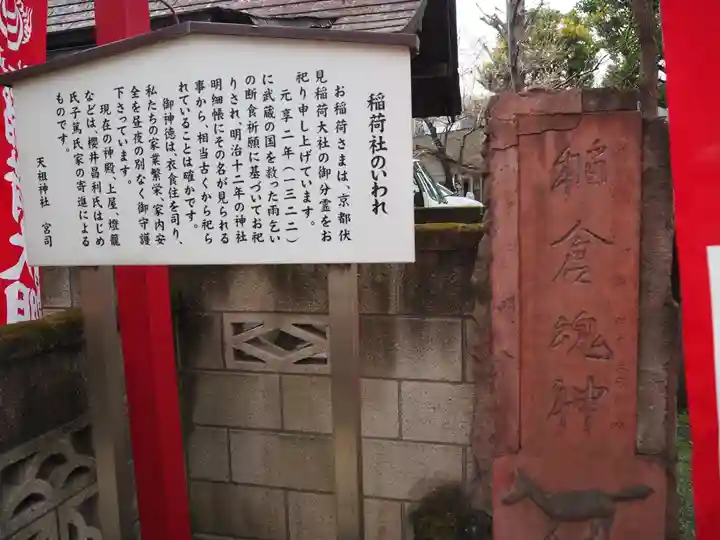 稲荷社のいわれ
お稲荷さまは、京都伏
見稲荷大社の御分霊をお
祀り申し上げています。
元享二年(一三二二)
に武蔵の国を救った雨乞い
の断食祈願に基づいてお祀
りされ、明治十二年の神社
明細帳にその名が見られる
事から、相当古くから祀ら
れていることは確かです。
御神徳は、衣食住を司り、
私たちの家業繁栄、家内安
全を昼夜の別なく御守護
下さっています。
現在の神殿、上屋、燈籠
などは、櫻井昌利氏はじめ
氏子篤氏家の寄進による
ものです。
天祖神社 宮司
稲倉魂神